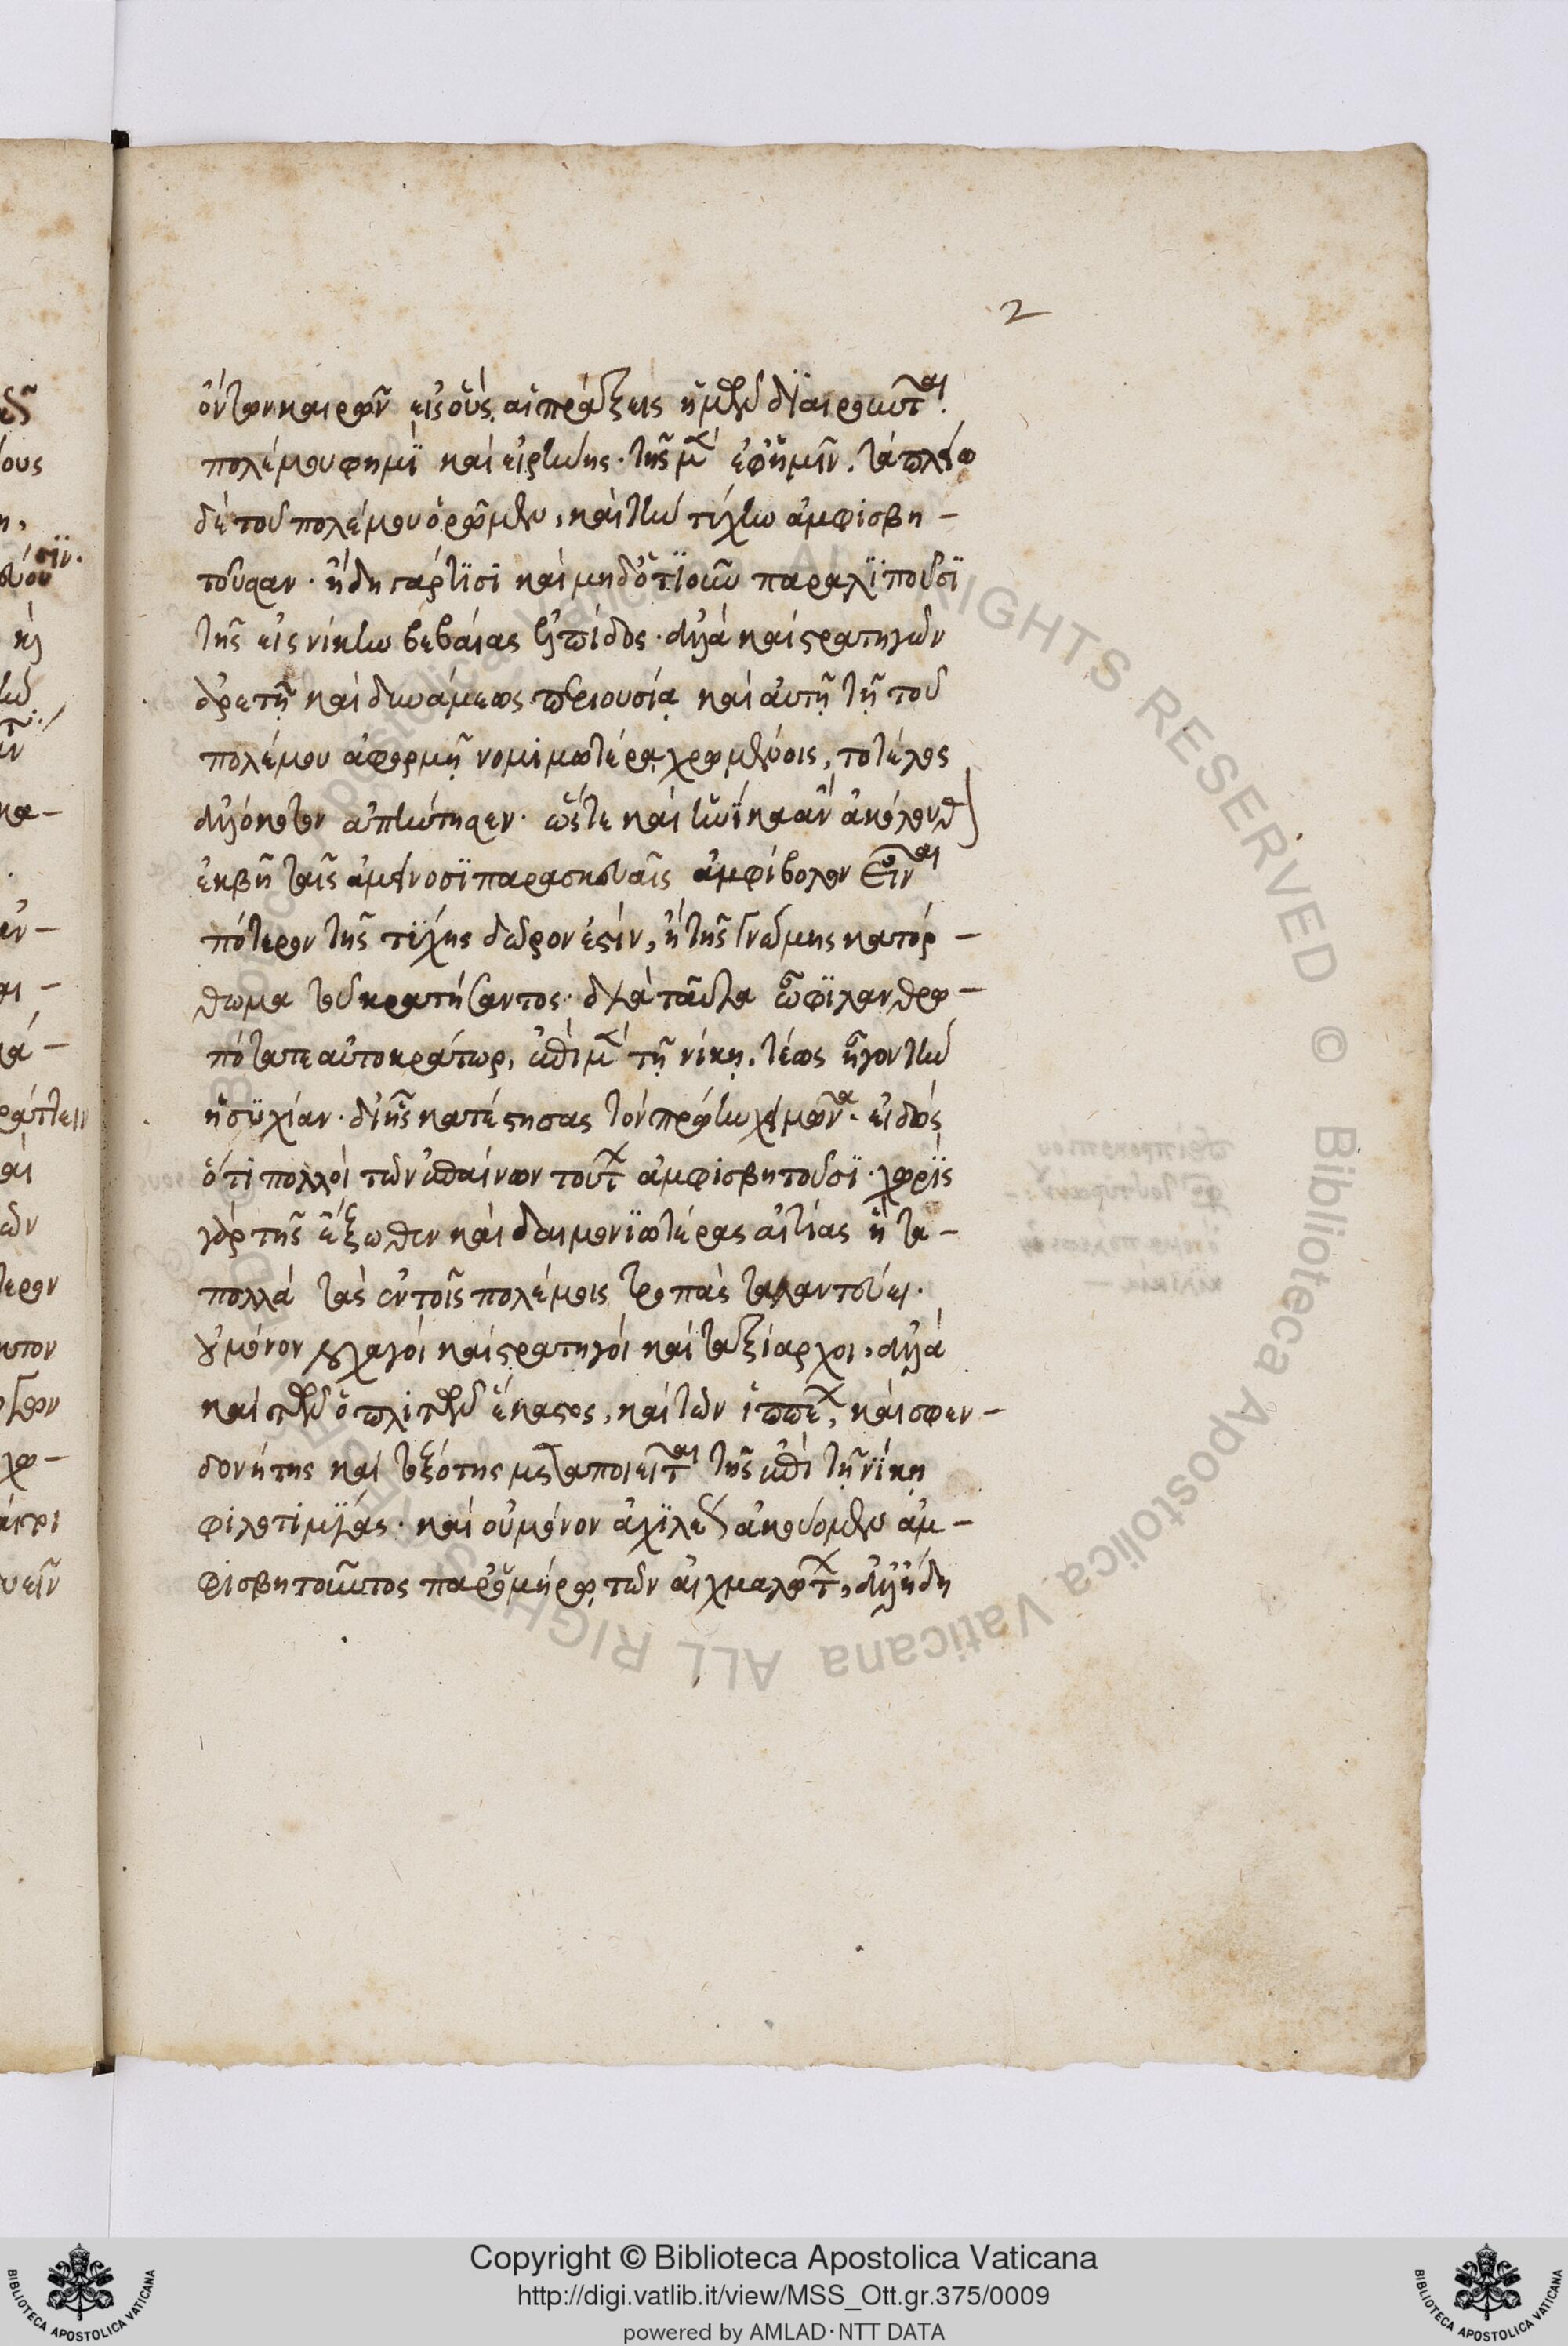 2
ὄντων καιρῶν εἰς οὓς αἱ πράξεις ἡμῶν διαιροῦνται.
πολέμου φημὶ καὶ εἰρήνης. τῆς μὲν ἐφ' ἡμῖν. τὰ πλείω
δὲ τοῦ πολέμου ὁρῶμεν, καὶ τὴν τύχην ἀμφισβη-
τοῦσαν. ἤδη γάρ τισι καὶ μηδ' ὁτιοῦν παραλιποῦσι
τῆς εἰς νίκην βεβαίας ἐλπίδος. ἀλλὰ καὶ στρατηγῶν
ἀρετῇ καὶ δυνάμεως περιουσίᾳ καὶ αὐτῇ τῇ τοῦ
πολέμου ἀφορμῇ νομιμωτέρᾳ χρωμένοις, τὸ τέλος
ἀλλόκοτον ἀπήντησεν. ὥστε καὶ ἡνίκα ἂν ἀκόλουθ
ἐκβῇ ταῖς ἀμείνοσι παρασκευαῖς ἀμφίβολον εἶναι
πότερον τῆς τύχης δῶρόν ἐστιν, ἢ τῆς γνώμης κατόρ-
θωμα τοῦ κρατήσαντος. διὰ ταῦτα ὦ φιλανθρω-
πότατε αὐτοκράτωρ, ἐπὶ μὲν τῇ νίκῃ. τέως ἦγον τὴν
ἡσυχίαν. δι' ἧς κατέστησας τὸν πρώην χειμῶνα. εἰδὼς
ὅτι πολλοὶ τῶν ἐπαίνων τούτων ἀμφισβητοῦσι. χωρὶς
γὰρ τῆς ἔξωθεν καὶ δαιμονιωτέρας αἰτίας ἣ τα-
πολλὰ τὰς ἐν τοῖς πολέμοις τροπὰς ταλαντεύει.
οὐ μόνον λοχαγοὶ καὶ στρατηγοὶ καὶ ταξίαρχοι, ἀλλὰ
καὶ τῶν ὁπλιτῶν ἕκαστος, καὶ τῶν ἱππέων, καὶ σφεν-
δονήτης καὶ τοξότης μεταποιεῖται τῆς ἐπὶ τῇ νίκῃ
φιλοτιμίας. καὶ οὐ μόνον ἀχιλλέως ἀκούομεν ἀμ-
φισβητοῦντος παρ' ὁμήρῳ τῶν αἰχμαλώτων, ἀλλ' ἤδη
Copyright © Biblioteca Apostolica Vaticana
http://digi.vatlib.it/view/MSS_Ott.gr.375/0009
powered by AMLAD·NTT DATA